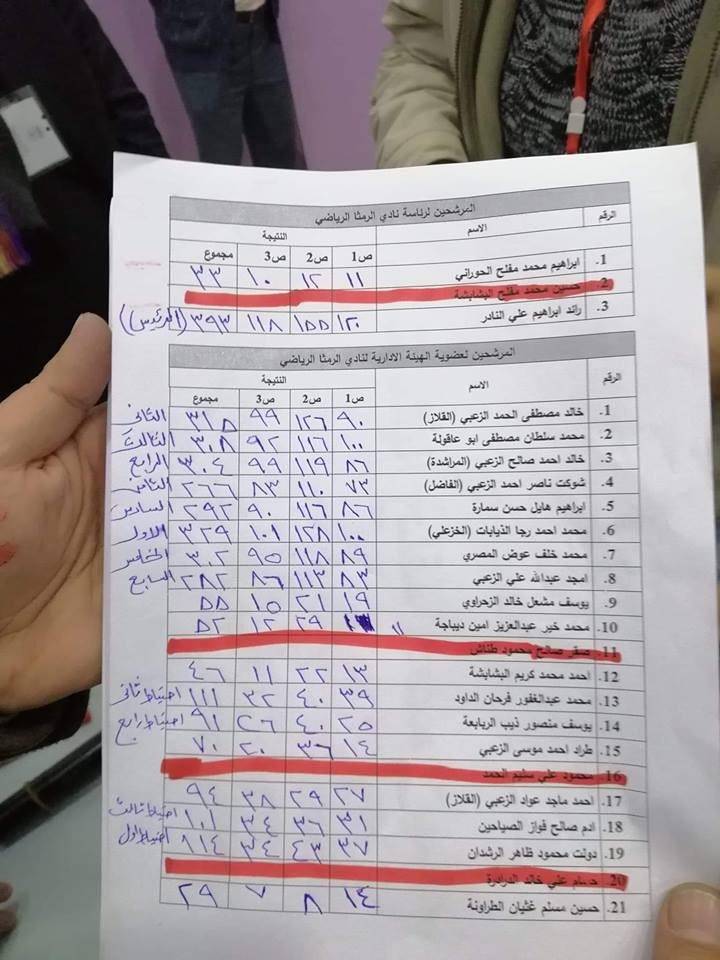 المرشحين لرئاسة نادي الرمثا الرياضي
الرقم الاسم النتيجة
ص1 ص2 ص3 مجموع
1. ابراهيم محمد مفلح الحوراني ١١ ١٢ ١٠ ٣٣
2. حسين محمد مفلح البشابشة
3. رائد ابراهيم علي النادر ١٢٠ ١٥٥ ١١٨ ٣٩٣ (الرئيس)
المرشحين لعضوية الهيئة الادارية لنادي الرمثا الرياضي
الرقم الاسم النتيجة
ص1 ص2 ص3 مجموع
1. خالد مصطفى الحمد الزعبي (القلاز) ٩٠ ١٢٦ ٩٩ ٣١٥ الثاني
2. محمد سلطان مصطفى ابو عاقولة ١٠٠ ١١٦ ٩٢ ٣٠٨ الثالث
3. خالد احمد صالح الزعبي (المراشدة) ٨٦ ١١٩ ٩٩ ٣٠٤ الرابع
4. شوكت ناصر احمد الزعبي (الفاضل) ٧٣ ١١٠ ٨٣ ٢٦٦ الثامن
5. ابراهيم هايل حسن سمارة ٨٦ ١١٦ ٩٠ ٢٩٢ السادس
6. محمد احمد رجا الذيابات (الخزعلي) ١٠٠ ١٢٨ ١٠١ ٣٢٩ الاول
7. محمد خلف عوض المصري ٨٩ ١١٨ ٩٥ ٣٠٢ الخامس
8. امجد عبدالله علي الزعبي ٨٣ ١١٣ ٨٦ ٢٨٢ السابع
9. يوسف مشعل خالد الزحراوي ١٩ ٢١ ١٥ ٥٥
10. محمد خير عبدالعزيز امين ديباجة ١١ ٢٩ ١٢ ٥٢
11. صقر صالح محمود طناش
12. احمد محمد كريم البشابشة ١٣ ٢٢ ١١ ٤٦
13. محمد عبدالغفور فرحان الداود ٣٩ ٤٠ ٣٢ ١١١ احتياط ثاني
14. يوسف منصور ذيب الربابعة ٢٥ ٤٠ ٢٦ ٩١ احتياط رابع
15. طراد احمد موسى الزعبي ١٤ ٣٦ ٢٠ ٧٠
16. محمود علي سليم الحمد
17. احمد ماجد عواد الزعبي (القلاز) ٢٧ ٢٩ ٣٨ ٩٤
18. ادم صالح فواز الصياحين ٣١ ٣٦ ٣٤ ١٠١ احتياط ثالث
19. دولت محمود ظاهر الرشدان ٣٧ ٤٣ ٣٤ ١١٤ احتياط اول
20. حسام علي خالد الدرادرة
21. حسين مسلم غثيان الطراونة ١٤ ٨ ٧ ٢٩